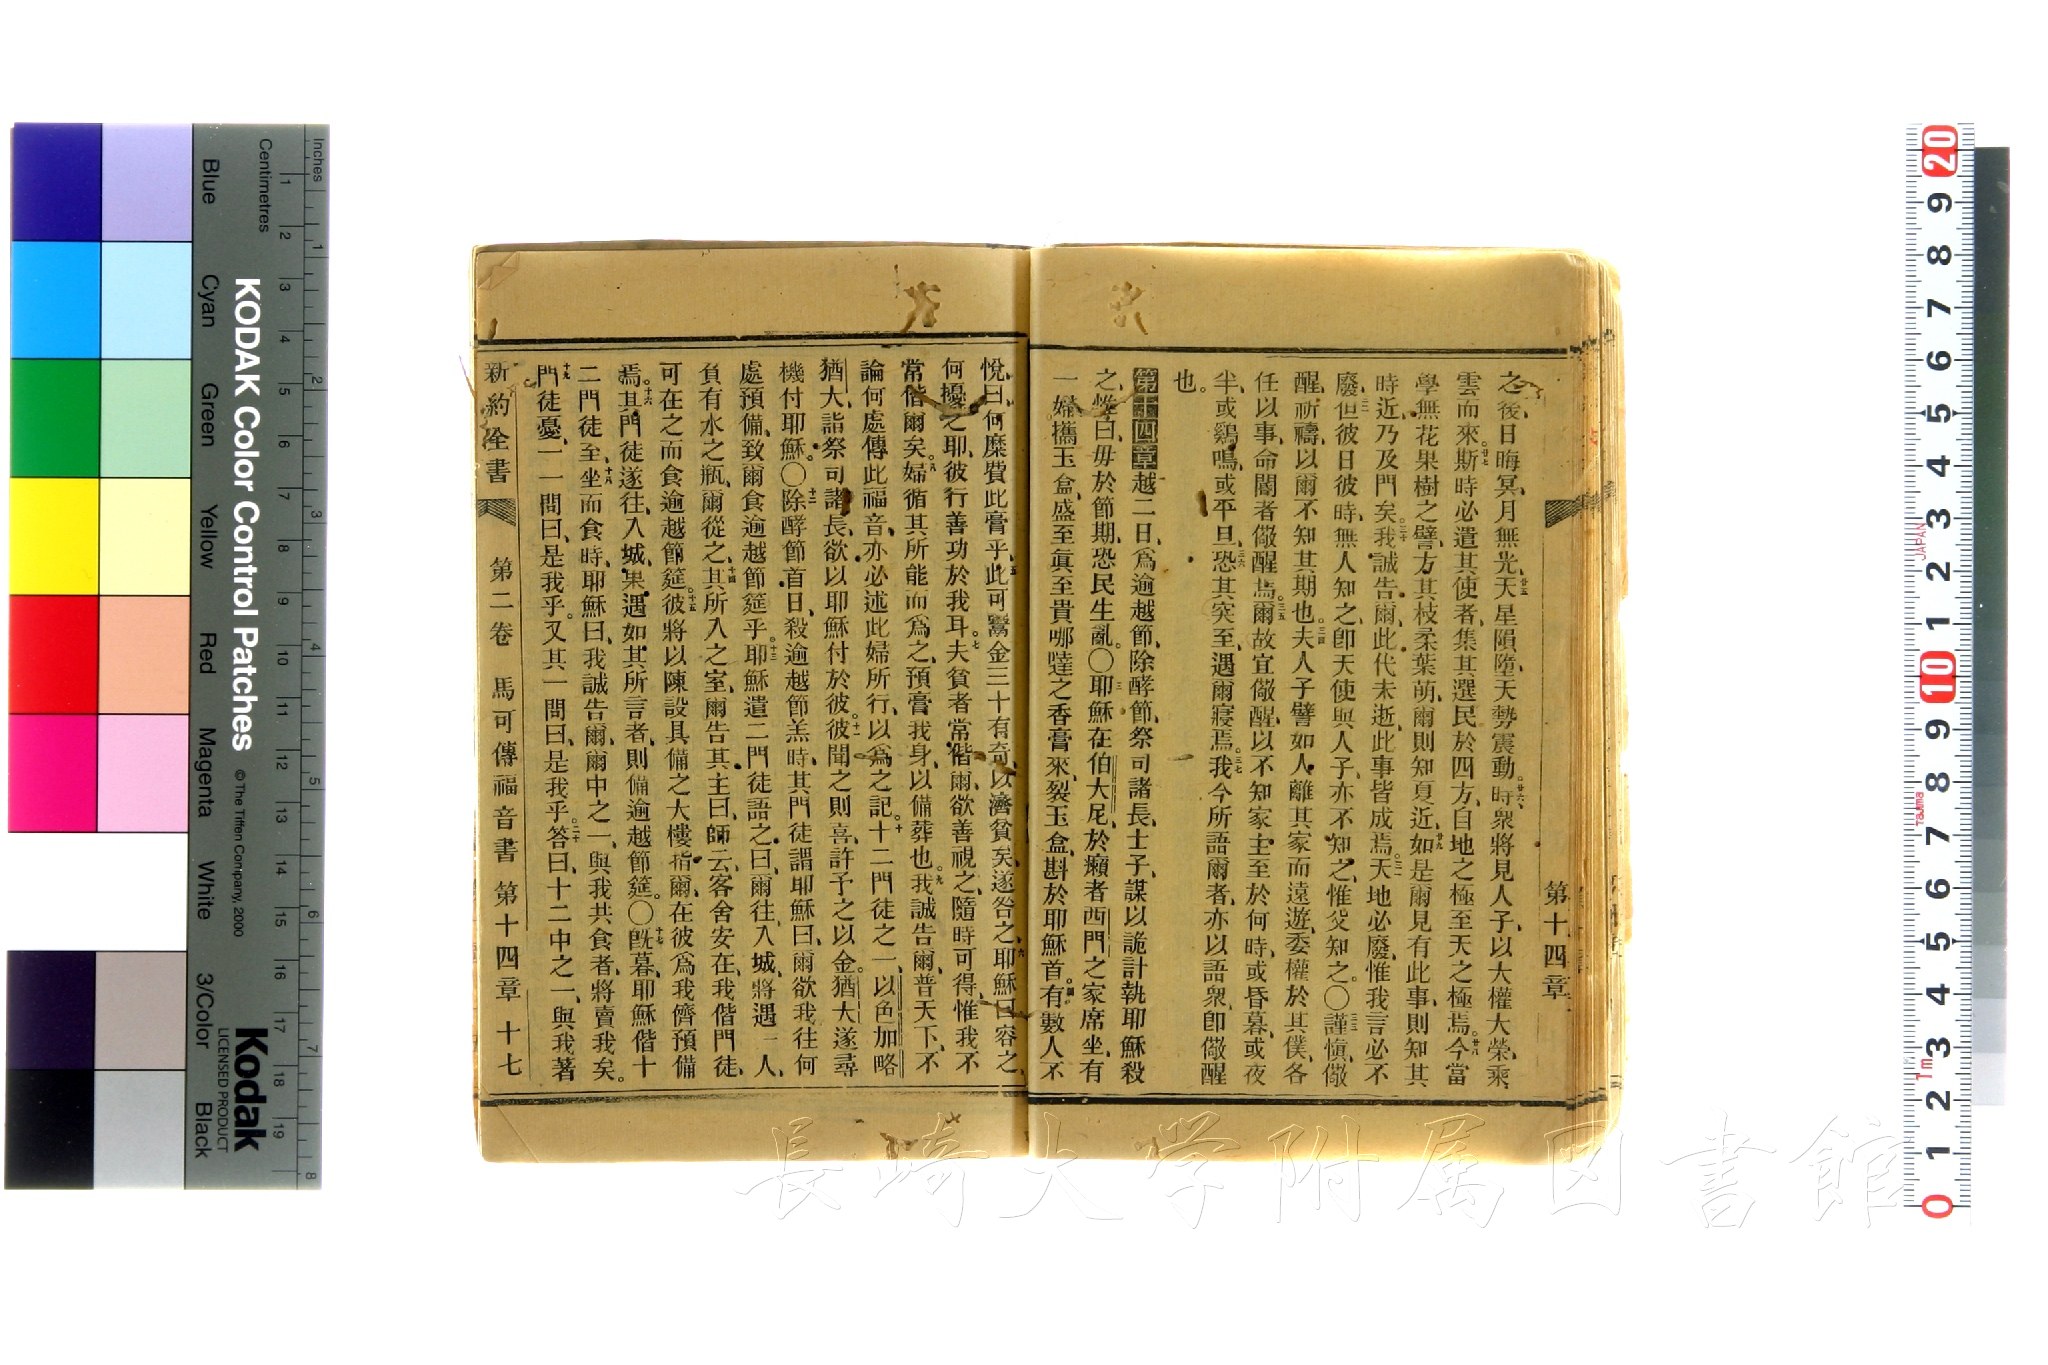 之後日晦冥、月無光、廿五天星隕墮、天勢震動。廿六時衆將見人子、以大權大榮、乘
雲而來。廿七斯時必遣其使者、集其選民於四方、自地之極至天之極焉。廿八今當
學無花果樹之譬、方其枝柔葉萌、爾則知夏近、廿九如是爾見有此事、則知其
時近、乃及門矣。三十我誠告爾、此代未逝、此事皆成焉。三一天地必廢、惟我言必不
廢。三二但彼日彼時、無人知之、卽天使與人子、亦不知之、惟父知之。〇三三謹愼、儆
醒、祈禱、以爾不知其期也。三四夫人子譬如人離其家而遠遊、委權於其僕、各
任以事、命閽者儆醒焉。三五爾故宜儆醒、以不知家主至於何時、或昏暮、或夜
半、或鷄鳴、或平旦、三六恐其突至、遇爾寢焉。三七我今所語爾者、亦以語衆、卽儆醒
也。
第十四章 越二日、爲逾越節、除酵節、祭司諸長、士子、謀以詭計執耶穌殺
之、惟曰、毋於節期、恐民生亂。〇三耶穌在伯大尼、於癩者西門之家席坐、有
一婦攜玉盒、盛至眞至貴哪噠之香膏來、裂玉盒、斟於耶穌首。四有數人不
悅、曰、何糜費此膏乎、五此可鬻金三十有奇、以濟貧矣、遂咎之、六耶穌曰、容之、
何擾之耶、彼行善功於我耳、七夫貧者常偕爾、欲善視之、隨時可得、惟我不
常偕爾矣。八婦循其所能而爲之、預膏我身、以備葬也。九我誠告爾、普天下、不
論何處傳此福音、亦必述此婦所行、以爲之記。十十二門徒之一、以色加略
猶大、詣祭司諸長、欲以耶穌付於彼。十一彼聞之則喜、許予之以金。猶大遂尋
機付耶穌。〇十二除酵節首日、殺逾越節羔時、其門徒謂耶穌曰、爾欲我往何
處預備、致爾食逾越節筵乎。十三耶穌遣二門徒、語之曰、爾往、入城、將遇一人、
負有水之瓶、爾從之、十四其所入之室、爾告其主曰、師云、客舍安在、我偕門徒、
可在之而食逾越節筵。十五彼將以陳設具備之大樓指爾、在彼爲我儕預備
焉。十六其門徒遂往、入城、果遇如其所言者、則備逾越節筵。〇十七旣暮、耶穌偕十
二門徒至、十八坐而食時、耶穌曰、我誠告爾、爾中之一、與我共食者、將賣我矣。
十九門徒憂、一一問曰、是我乎。又其一問曰、是我乎。二十答曰、十二中之一、與我著
新約全書 第二卷 馬可傳福音書 第十四章 十七
第十四章
KODAK Color Control Patches © The Tiffen Company, 2000
Kodak
LICENSED PRODUCT
Inches
Centimetres
Blue Cyan Green Yellow Red Magenta White 3/Color Black
長崎大学附属図書館